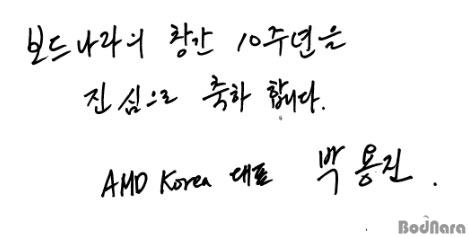 보드나라의 창간 10주년을
진심으로 축하 합니다.
AMD Korea 대표 박용진.
BodNara